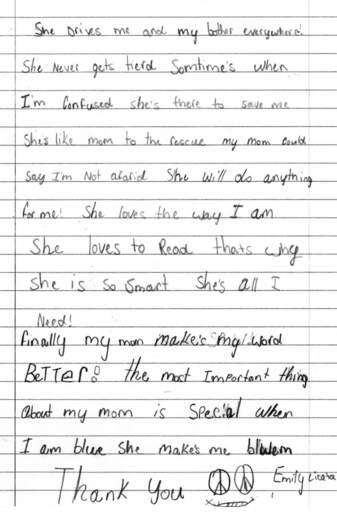 She Drives me and my bother everywhere!
She Never gets tierd Somtime's when
I'm Confused she's there to save me
She's like mom to the rescue my mom could
say I'm Not afarid She will do anything
for me! She loves the way I am
She loves to Read thats why
She is so Smart She's all I
Need!
Finally my mom make's my word
BeTTer! the most Important thing
about my mom is Special when
I am blue she makes me
Thank You Emily